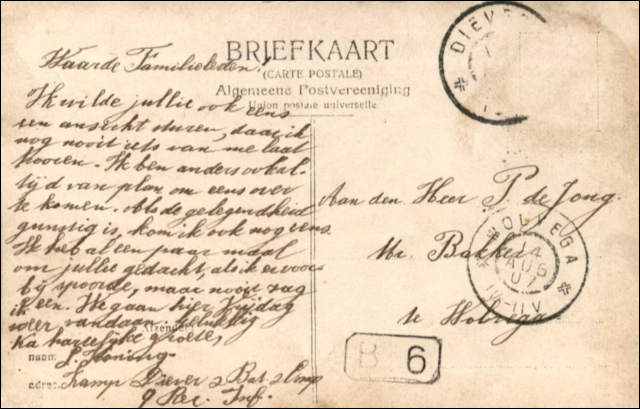 Waarde Familieleden!
BRIEFKAART
(CARTE POSTALE)
Algemeene Postvereeniging
Union postale universelle.
Ik wilde jullie ook eens
een ansicht sturen, daar ik
nog nooit iets van me laat
hooren. Ik ben anders ook al-
tijd van plan om eens over
te komen. Als de gelegendheid
gunstig is, kom ik ook nog eens.
Ik heb al een paar maal
om jullie gedacht, als ik er voor-
bij spoorde, maar nooit zag
ik een. We gaan hier Vrijdag
weer vandaan. Gelukkig
Na hartelijke groete,
Afzender
naam: J. Koning
adres: Kamp Diever 2 Bat. 2
9 Reg. Inf.
Aan den Heer P. de Jong
Mr. Bakker
te Wolvega
DIEVER
WOLVEGA
14
AUG
07
B 6